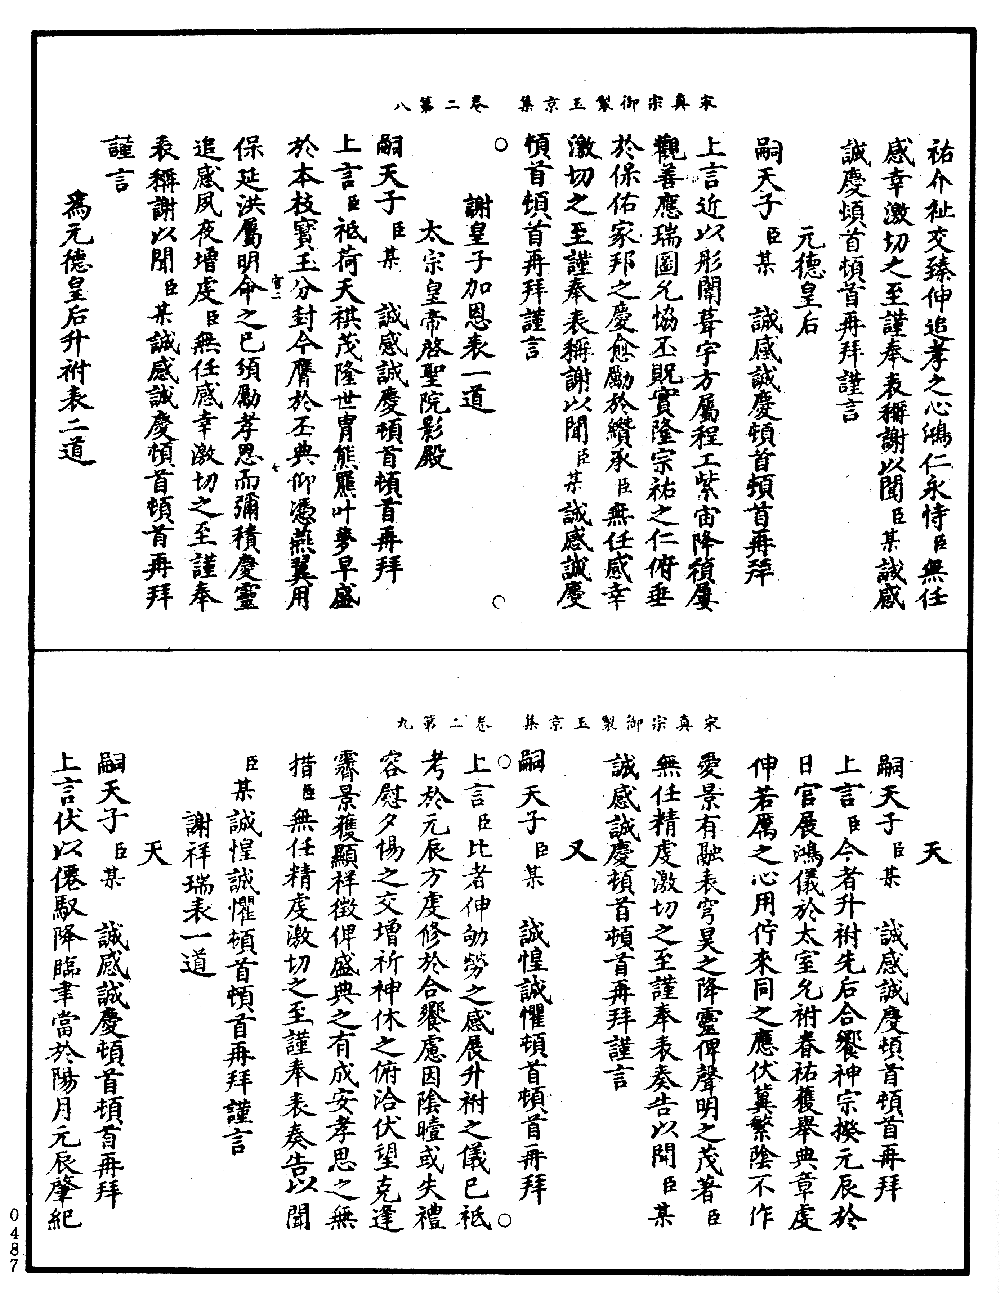 宋真宗御製玉京集　卷二第八
祐介祉交臻伸追孝之心鴻仁永恃臣無任
感幸激切之至謹奉表稱謝以聞臣某誠感
誠慶頓首頓首再拜謹言
元德皇后
嗣天子臣某　誠感誠慶頓首頓首再拜
上言近以彤闈葺宇方屬程工紫宙降禎屢
觀善應瑞圖允協丕貺實隆宗祐之仁俯垂
於保佑家邦之慶愈勵於纘承臣無任感幸
激切之至謹奉表稱謝以聞臣某誠感誠慶
頓首頓首再拜謹言
謝皇子加恩表一道
太宗皇帝啓聖院影殿
嗣天子臣某　誠感誠慶頓首頓首再拜
上言臣祇荷天祺茂隆世胄熊羆叶夢早盛
於本枝寶玉分封今膺於丕典仰憑燕翼用
保延洪屬明命之已頒勵孝思而彌積慶靈
追感夙夜增虔臣無任感幸激切之至謹奉
表稱謝以聞臣某誠感誠慶頓首頓首再拜
謹言
為元德皇后升祔表二道
宋真宗御製玉京集　卷二第九
天
嗣天子臣某　誠感誠慶頓首頓首再拜
上言臣今者升祔先后合饗神宗揆元辰於
日官展鴻儀於太室允祔眷祐獲舉典章虔
伸若厲之心用佇來同之應伏冀繁陰不作
愛景有融表穹昊之降靈俾聲明之茂著臣
無任精虔激切之至謹奉表奏告以聞臣某
誠感誠慶頓首頓首再拜謹言
又
嗣天子臣某　誠惶誠懼頓首頓首再拜
上言臣比者伸劬勞之感展升祔之儀已祇
考於元辰方虔修於合饗慮因陰曀或失禮
容慰夕惕之交增祈神休之俯洽伏望克逢
霽景獲顯祥徵俾盛典之有成安孝思之無
措臣無任精虔激切之至謹奉表奏告以聞
臣某誠惶誠懼頓首頓首再拜謹言
謝祥瑞表一道
天
嗣天子臣某　誠感誠慶頓首頓首再拜
上言伏以僊馭降臨聿當於陽月元辰肇紀
0487